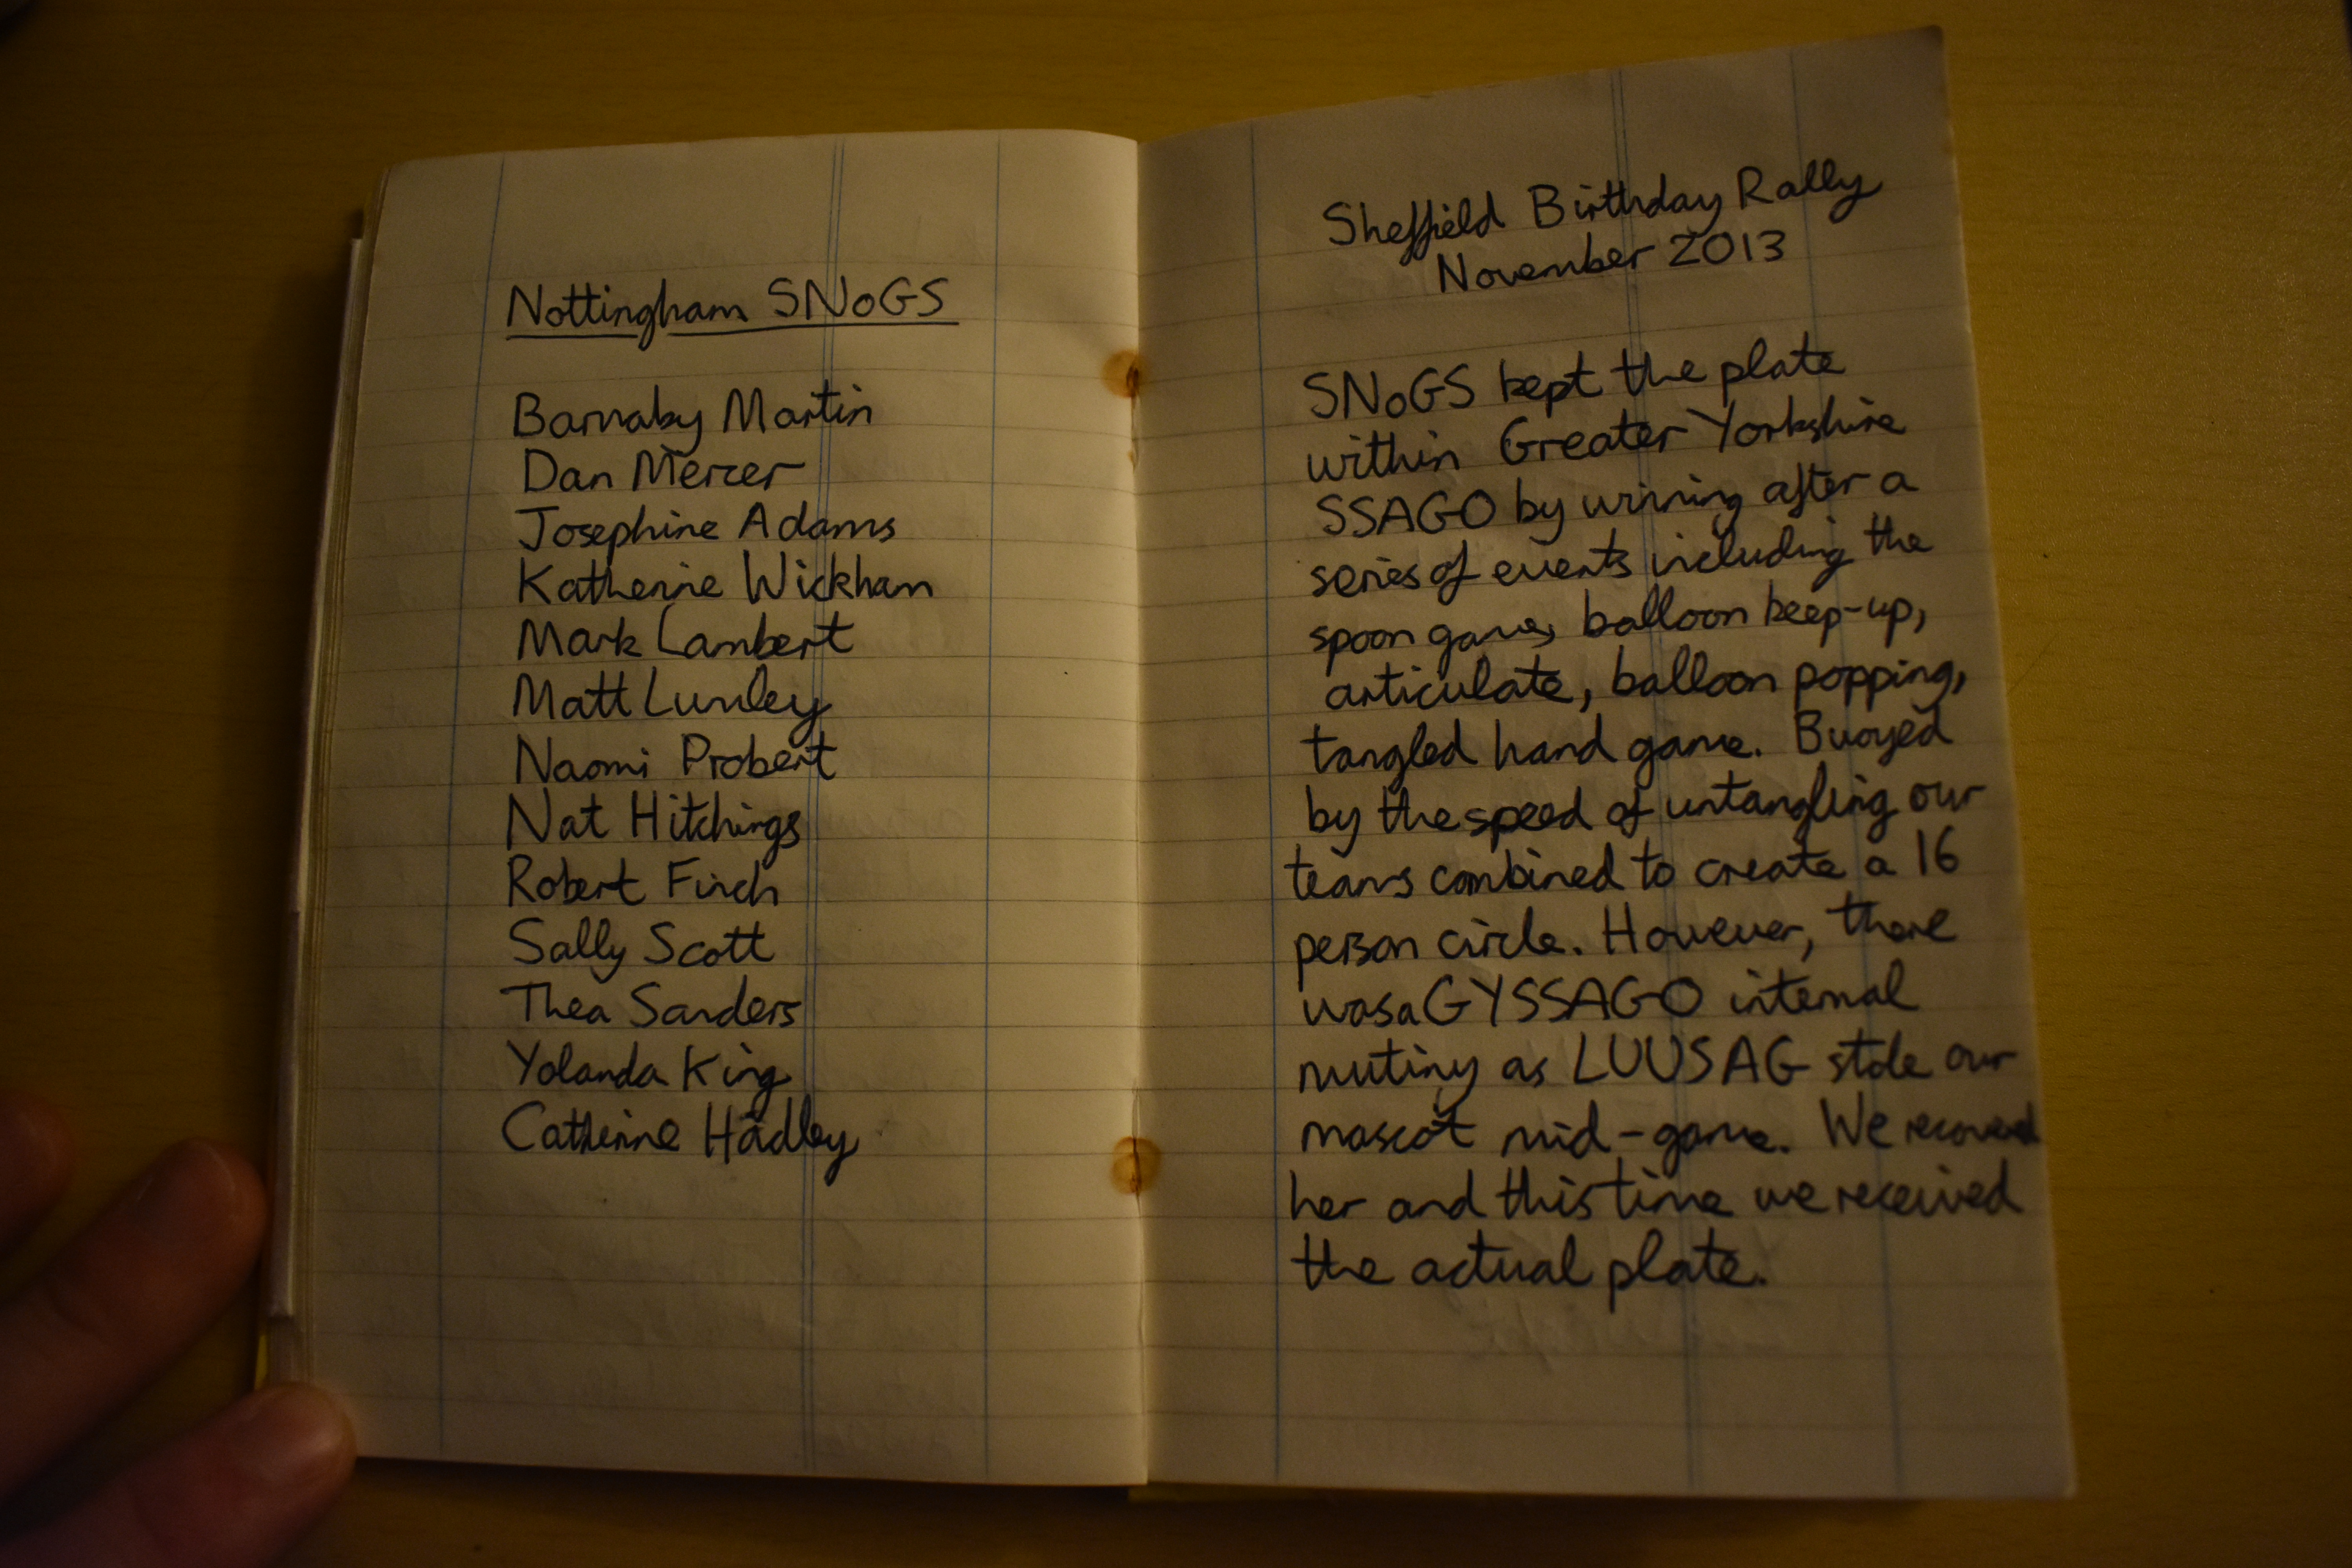 Nottingham SNoGS
Barnaby Martin
Dan Mercer
Josephine Adams
Katherine Wickham
Mark Lambert
Matt Lumley
Naomi Probert
Nat Hitchings
Robert Finch
Sally Scott
Thea Sanders
Yolanda King
Catherine Hadley
Sheffield Birthday Rally
November 2013
SNoGS kept the plate
within Greater Yorkshire
SSAGO by winning after a
series of events including the
spoon game, balloon keep-up,
articulate, balloon popping,
tangled hand game. Buoyed
by the speed of untangling our
teams combined to create a 16
person circle. However, there
was a GYSSAGO internal
mutiny as LUUSAG stole our
mascot mid-game. We recovered
her and this time we received
the actual plate.